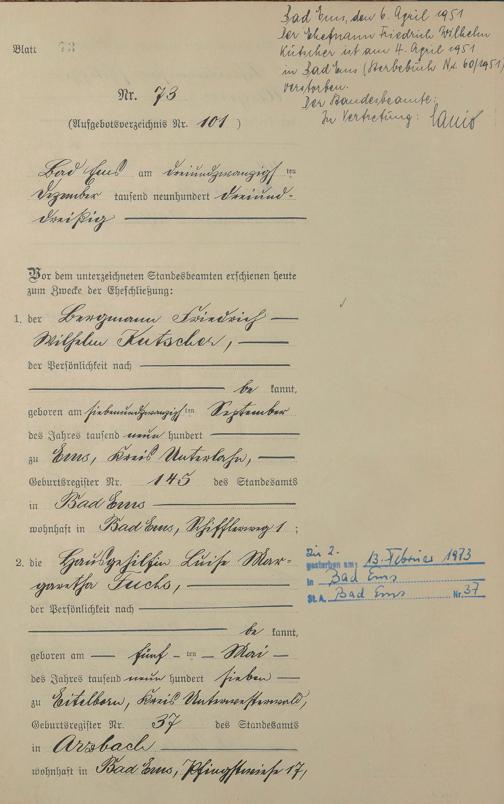 Bad Ems, den 6. April 1951
Der Ehemann Friedrich Wilhelm
Kutscher ist am 4. April 1951
in Bad Ems (Sterbebuch Nr. 60/1951)
verstorben.
Der Standesbeamte:
In Vertretung:
Blatt 73
Nr. 73
(Aufgebotsverzeichnis Nr. 101 )
Bad Ems am dreiundzwanzigsten
Dezember tausend neunhundert dreiund-
dreißig
Vor dem unterzeichneten Standesbeamten erschienen heute
zum Zwecke der Eheschließung:
1. der Bergmann Friedrich
Wilhelm Kutscher,
der Persönlichkeit nach
be kannt,
geboren am siebenundzwanzigsten September
des Jahres tausend neun hundert
zu Ems, Kreis Unterlahn,
Geburtsregister Nr. 145 des Standesamts
in Bad Ems
wohnhaft in Bad Ems, Schifflerweg 1 ;
2. die Hausgehilfin Luise Mar-
garetha Fuchs,
der Persönlichkeit nach
be kannt,
geboren am fünften Mai
des Jahres tausend neun hundert sieben
zu Eitelborn, Kreis Unterwesterwald,
Geburtsregister Nr. 37 des Standesamts
in Arzbach
wohnhaft in Bad Ems, Pfingstwiese 17,
Zu 2.
gestorben am: 13. Februar 1973
in Bad Ems
St. A. Bad Ems Nr. 37